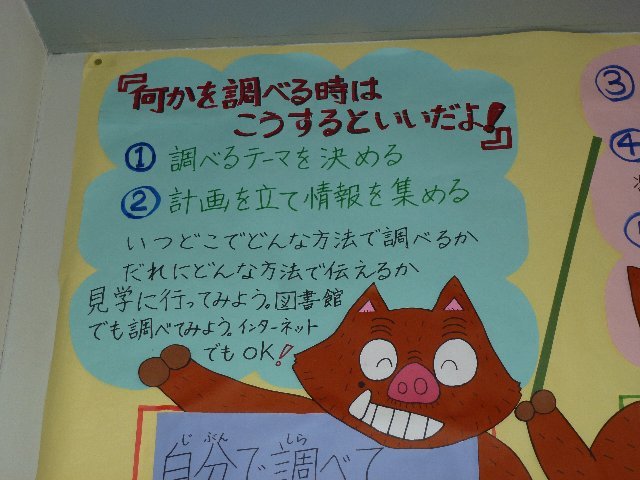 『何かを調べる時は
こうするといいだよ!』
① 調べるテーマを決める
② 計画を立て情報を集める
いつどこでどんな方法で調べるか
だれにどんな方法で伝えるか
見学に行ってみよう。図書館
でも調べてみよう。インターネット
でもOK!
じ ぶん しら
自分で調べて
③
④